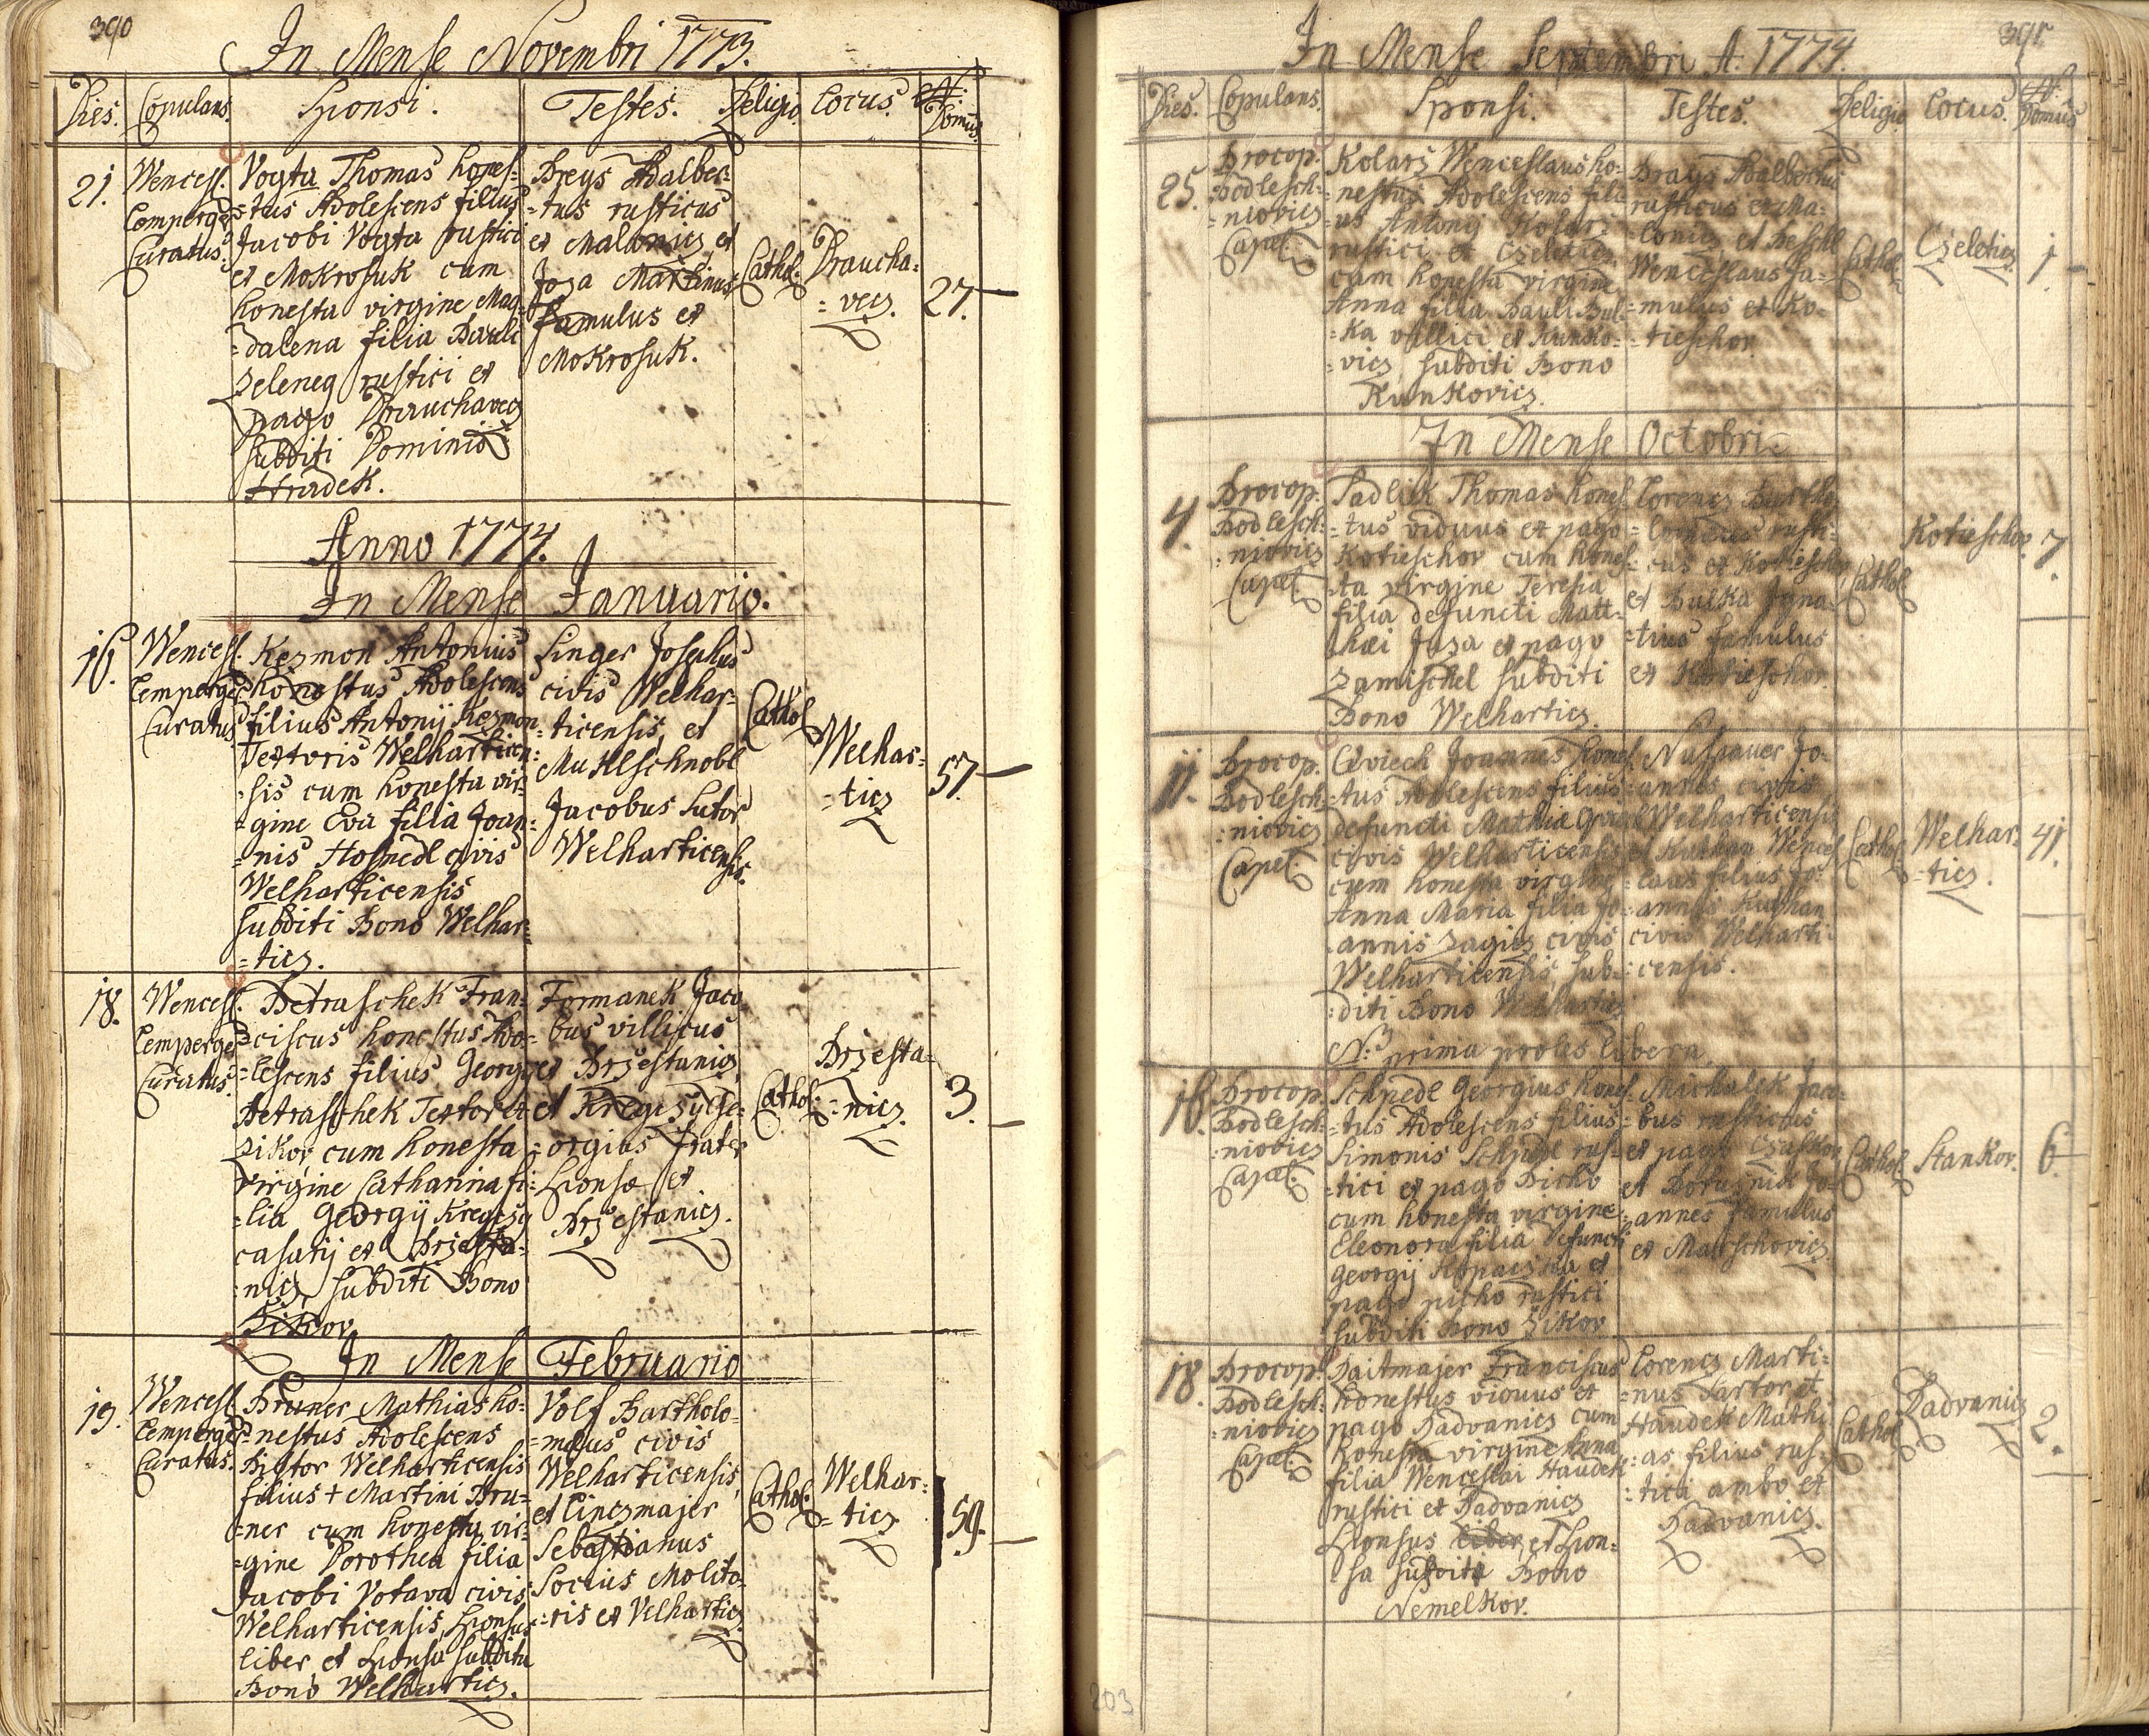 390
In Mense Novembri 1773.
Dies. Copulans. Sponsi. Testes. Religio Locus No. Domus
21. Wencesl. Lemperger Curatus.
Vogta Thomas hones-
-tus Adolescens filius
Jacobi Vogta rustici
et Mokrosuk cum
honesta virgine Mag-
-dalena filia Pauli
Zeleneq rustici et
pago Drauchavecz
subditi Dominio
Hradek.
Dreys Adalber-
-tus rusticus
et Malonicz et
Joza Martinus
famulus et
Mokrosuk.
Cathol.
Draucha-
-vecz.
27.
Anno 1774.
In Mense Januario.
16. Wencesl. Lemperger Curatus
Kezmon Antonius
honestus Adolescens
filius Antonij Kezmon
Textoris Welharticen-
-sis cum honesta vir-
-gine Eva filia Joan-
-nis Hosnedl civis
Welharticensis
subditi Bono Welhar-
-ticz.
Singer Josephus
civis Welhar-
-ticensis, et
Muhlschnobl
Jacobus Sutor
Welharticensis.
Cathol
Welhar-
-ticz
57.
18. Wencesl. Lemperger Curatus.
Petraschek Fran-
-ciscus honestus Ado-
-lescens filius Georgy
Petraschek Textor et
Zikov cum honesta
virgine Catharina fi-
-lia Georgij Kregczy
casarij et Brzesta-
-nicz subditi Bono
Zikov
Formanek Jaco
-bus villicus
et Brzestanicz
et Kregczy Ge-
-orgius frater
Sponsæ et
Brzestanicz.
Cathol.
Brzesta-
-nicz.
3.
In Mense Februario
19. Wencesl. Lemperger Curatus.
Bruner Mathias ho-
-nestus Adolescens
Pistor Welharticensis
filius + Martini Bru-
-ner cum honesta vir-
-gine Dorothea filia
Jacobi Votava civis
Welharticensis, Sponsus
liber et Sponsa subdita
Bono Welharticz.
Volf Bartholo-
-mæus civis
Welharticensis,
et Linczmajer
Sebastianus
Socius Molito-
-ris et Velharticz
Cathol.
Welhar-
-ticz
59.
391
In Mense Septembri A. 1774.
Dies. Copulans. Sponsi. Testes. Religio Locus. No. Domus
25. Procop. Podlesch-
-niovicz
Capel.
Kolarz Wenceslaus ho-
-nestus Adolescens fili
-us Antony Kolarz
rustici et Czeleticz
cum honesta virgine
Anna filia Pauli Bul-
-ka villici et Kunko-
-vicz subditi Bono
Kunkovicz.
Drays Adalbertus
rusticus et Ma-
-lonicz et Peschl
Wenceslaus fa-
-mulus et Ko-
-tieschov.
Cathol.
Czeleticz
1
In Mense Octobri
4. Procop. Podlesch-
-niovicz
Capel.
Sadlick Thomas hones-
-tus viduus et pago
Kotieschov cum hones-
-ta virgine Teresia
filia defuncti Matt-
hæi Joza et pago
Zamischel subditi
Bono Welharticz.
Lorencz Bartho-
-lomæus rusti-
-cus et Kotieschov
et Bulka Igna-
-tius famulus
et Kotieschov.
Cathol
Kotieschov.
7.
11. Procop. Podlesch-
-niovicz
Capel.
Joannes hones-
-tus Adolescens filius
defuncti Mathiæ
civis Welharticensis
cum honesta virgine
Anna Maria filia Jo-
-annis Zagicz civis
Welharticensis, sub-
-diti Bono Welharticz
N: prima proles libera.
Nussauer Jo-
-annes civis
Welharticensis
et Kuchan Wences-
-laus filius Jo-
-annis Kuchan
civis Welharti-
-censis.
Cathol.
Welhar-
-ticz.
41.
16. Procop. Podlesch-
-niovicz
Capel.
Schnedl Georgius hones-
-tus Adolescens filius
Simonis Schnedl rus-
-tici et pago Dicho
cum honesta virgine
Eleonora filia defuncti
Georgij et
pago rustici
subditi Bono Zikov
Michalek Jaco-
-bus rusticus
et pago Czaskov
et Jo-
-annes famulus
et Matschovicz
Cathol.
Stankov.
6
18. Procop. Podlesch-
-niovicz
Capel.
Daitmajer Franciscus
honestus viduus et
pago Radvanicz cum
honesta virgine Anna
filia Wenceslai Haudek
rustici et Radvanicz
Sponsus liber, et Spon-
-sa subdita Bono
Nemelkov.
Lorencz Marti-
-nus Sartor et
Haudek Mathi-
-as filius rus-
-tici ambo et
Radvanicz.
Cathol
Radvanicz
2.
203